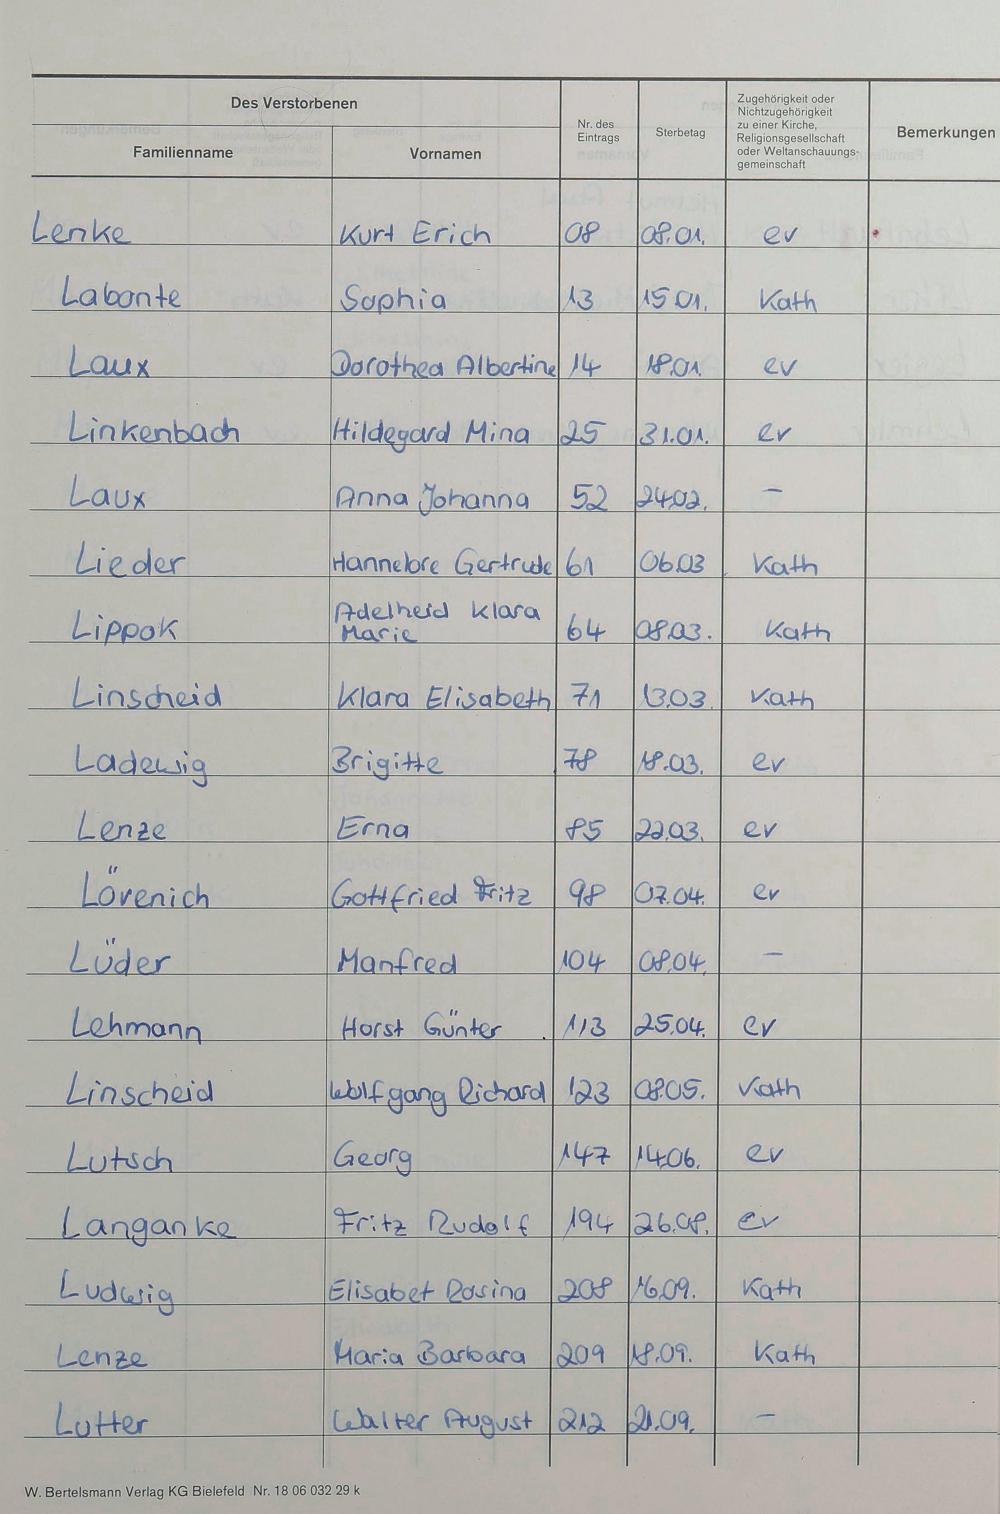 Des Verstorbenen
Familienname
Vornamen
Nr. des
Eintrags
Sterbetag
Zugehörigkeit oder
Nichtzugehörigkeit
zu einer Kirche,
Religionsgesellschaft
oder Weltanschauungs-
gemeinschaft
Bemerkungen
Lenke Kurt Erich 08 08.01. ev
Labonte Sophia 13 15.01. Kath
Laux Dorothea Albertine 14 18.01. ev
Linkenbach Hildegard Mina 25 31.01. ev
Laux Anna Johanna 52 24.02. –
Lieder Hannelore Gertrude 61 06.03 Kath
Adelheid Klara
Lippok Marie 64 08.03. Kath
Linscheid Klara Elisabeth 71 13.03. Kath
Ladewig Brigitte 78 18.03. ev
Lenze Erna 85 22.03. ev
Lövenich Gottfried Fritz 98 07.04. ev
Lüder Manfred 104 08.04. –
Lehmann Horst Günter 113 25.04. ev
Linscheid Wolfgang Richard 123 08.05. Kath
Lutsch Georg 147 14.06. ev
Langanke Fritz Rudolf 194 26.08. ev
Ludwig Elisabet Rosina 208 16.09. Kath
Lenze Maria Barbara 209 18.09. Kath
Lutter Walter August 212 21.09. –
W. Bertelsmann Verlag KG Bielefeld Nr. 18 06 032 29 k